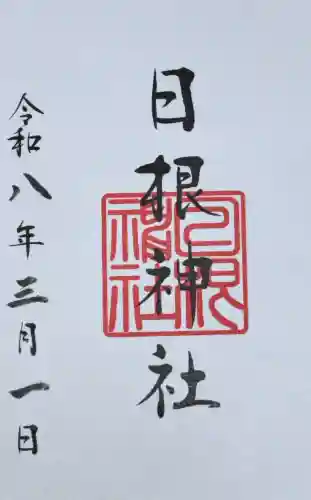 日根神社
令和八年三月一日
日根神社